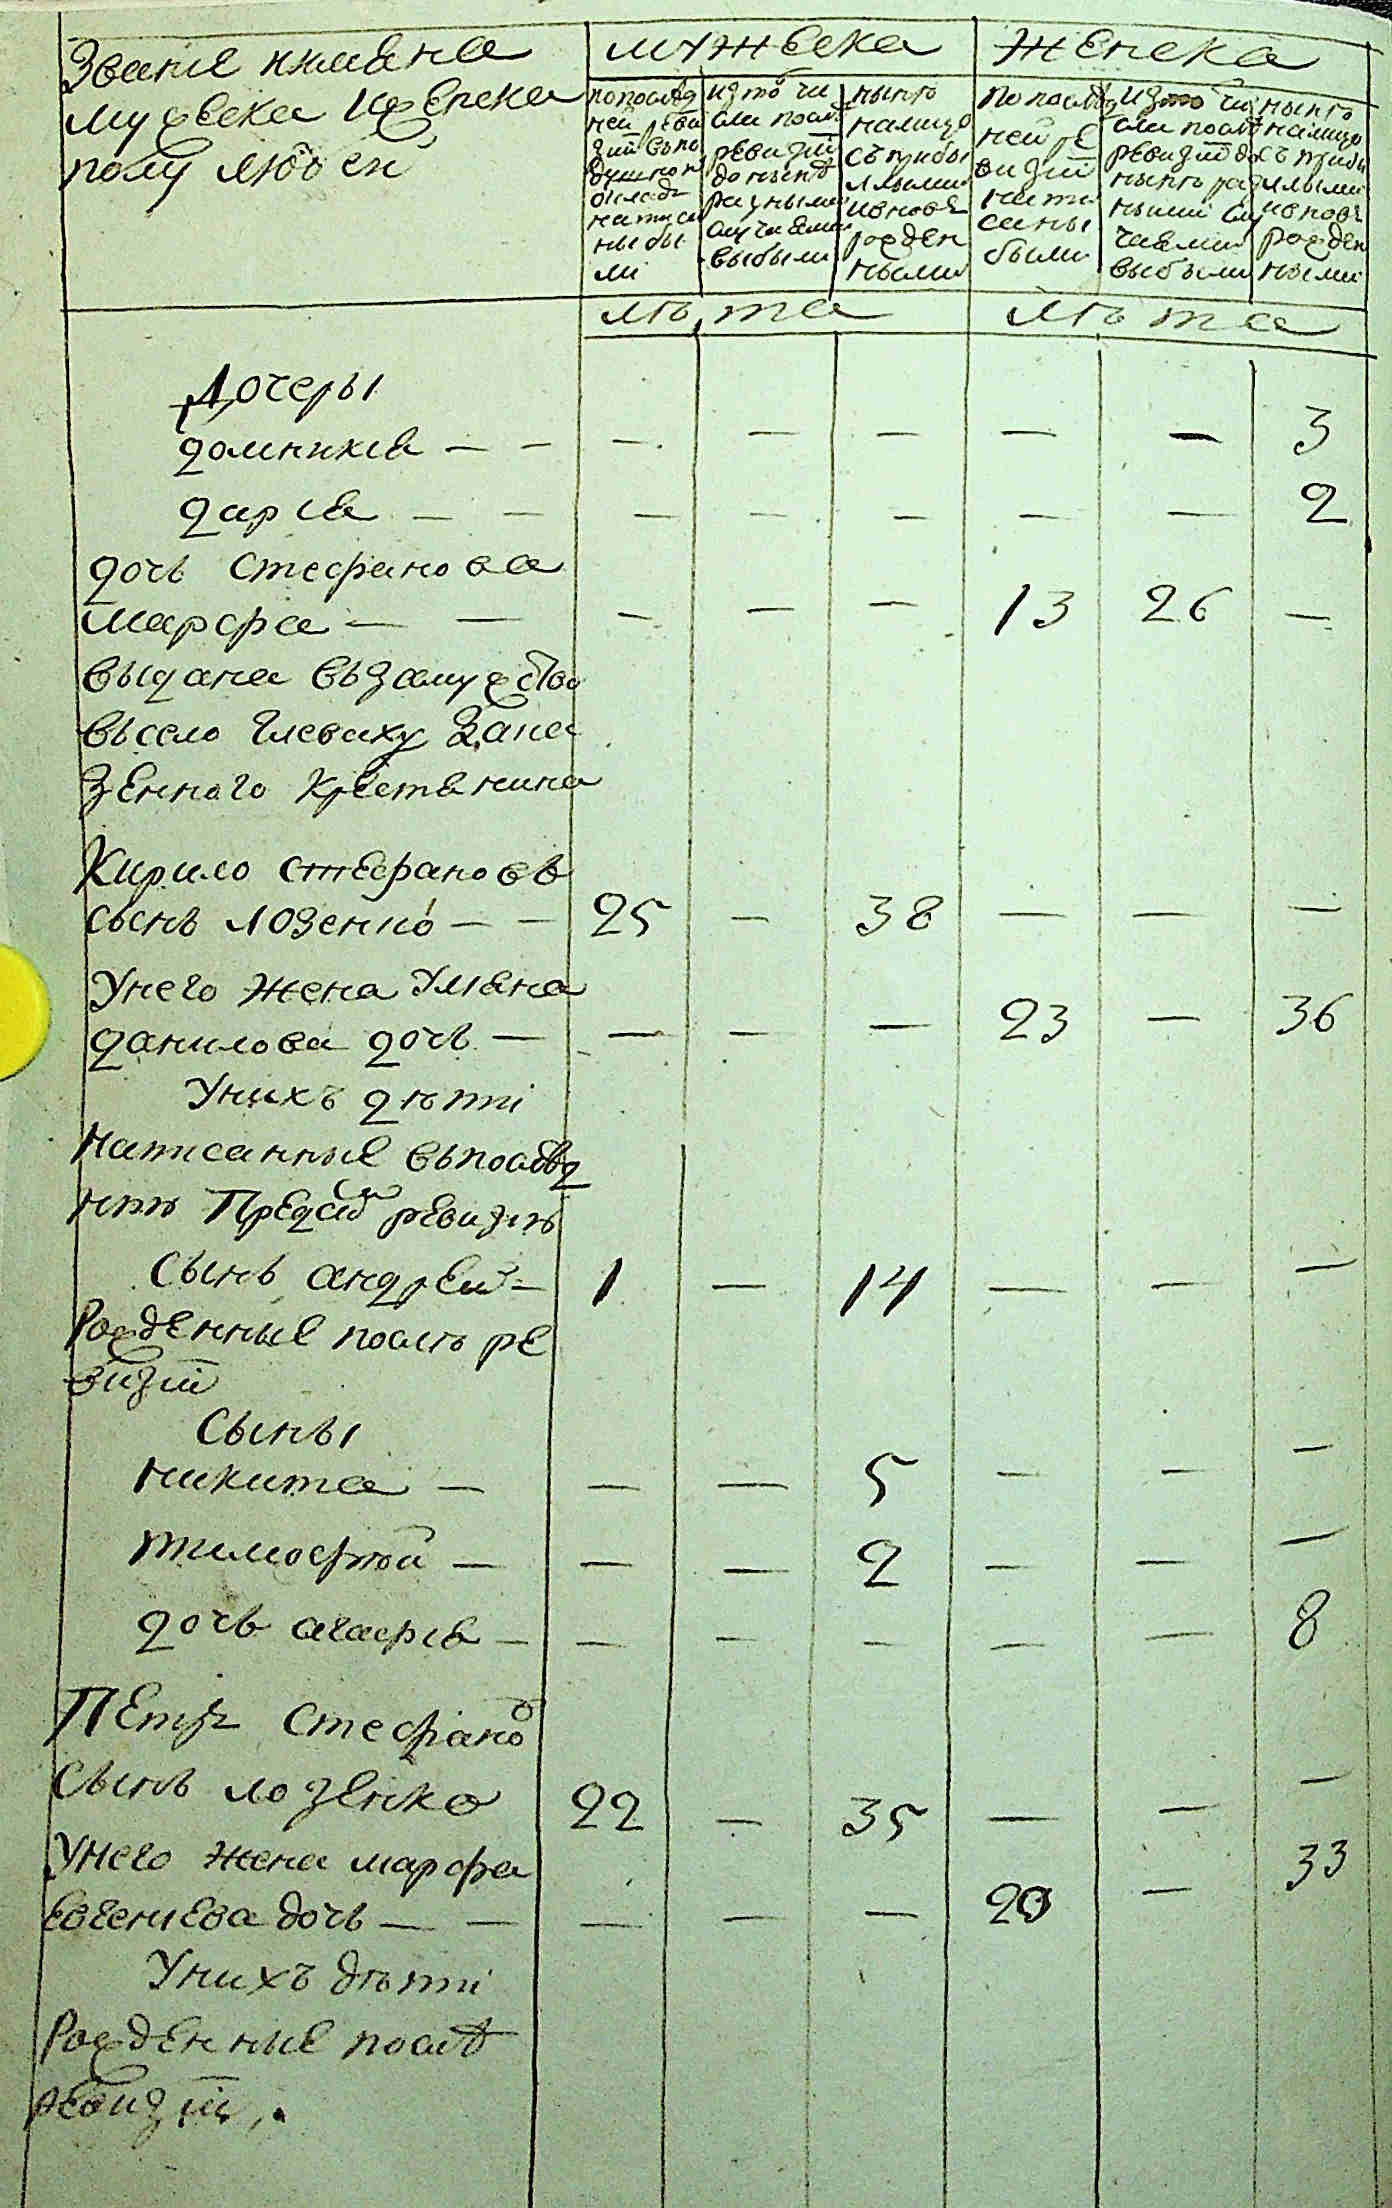 Званіе иимена
мужвека ижєнска
полу людєй
мужвека
женска
попослѣд
ней реви
зии въпо
душном
окладѣ
написа
ны бы
ли
изтоѣ чи
сли посл
ревизіи
до нынѣ
разными
случаями
выбыли
нынѣ
налицо
съприбы
лыми
ивновь
рожден
ными
попослѣд
ней ре
визіи
напи
саны
были
изтоѣ чи
сли послѣ
ревизіи до
нынѣ раз
ными слу
чаями
выбыли
нынѣ
налицо
съ прибы
лыми
ивновь
рожден
ными
лѣта лѣта
Дочеры
домникія — — — — — — — 3
дарія — — — — — — — 2
дочь Стефанова
марфа — — — — — 13 26 —
выдана възамужство
въсело Глеваху Зака
зенного крестянина
Кирило стефановъ
сынъ лозенко — — 25 — 38 — — —
Унего жена Уляна
данилова дочь — — — — 23 — 36
Унихъ дѣти
написанные въпослѣд
нѣй Предсей ревизіи
Сынъ андрей — 1 — 14 — — —
Рожденные послѣ ре
визіи
Сыны
никита — — — 5 — — —
тимофѣй — — — 2 — — —
дочь агафія — — — — — — 8
Петръ Стефановъ
Сынъ лозенко 22 — 35 — — —
Унего жена марфа
Евгениева дочь — — — — — 20 — 33
Унихъ дѣти
Рожденные послѣ
ревизіи,.